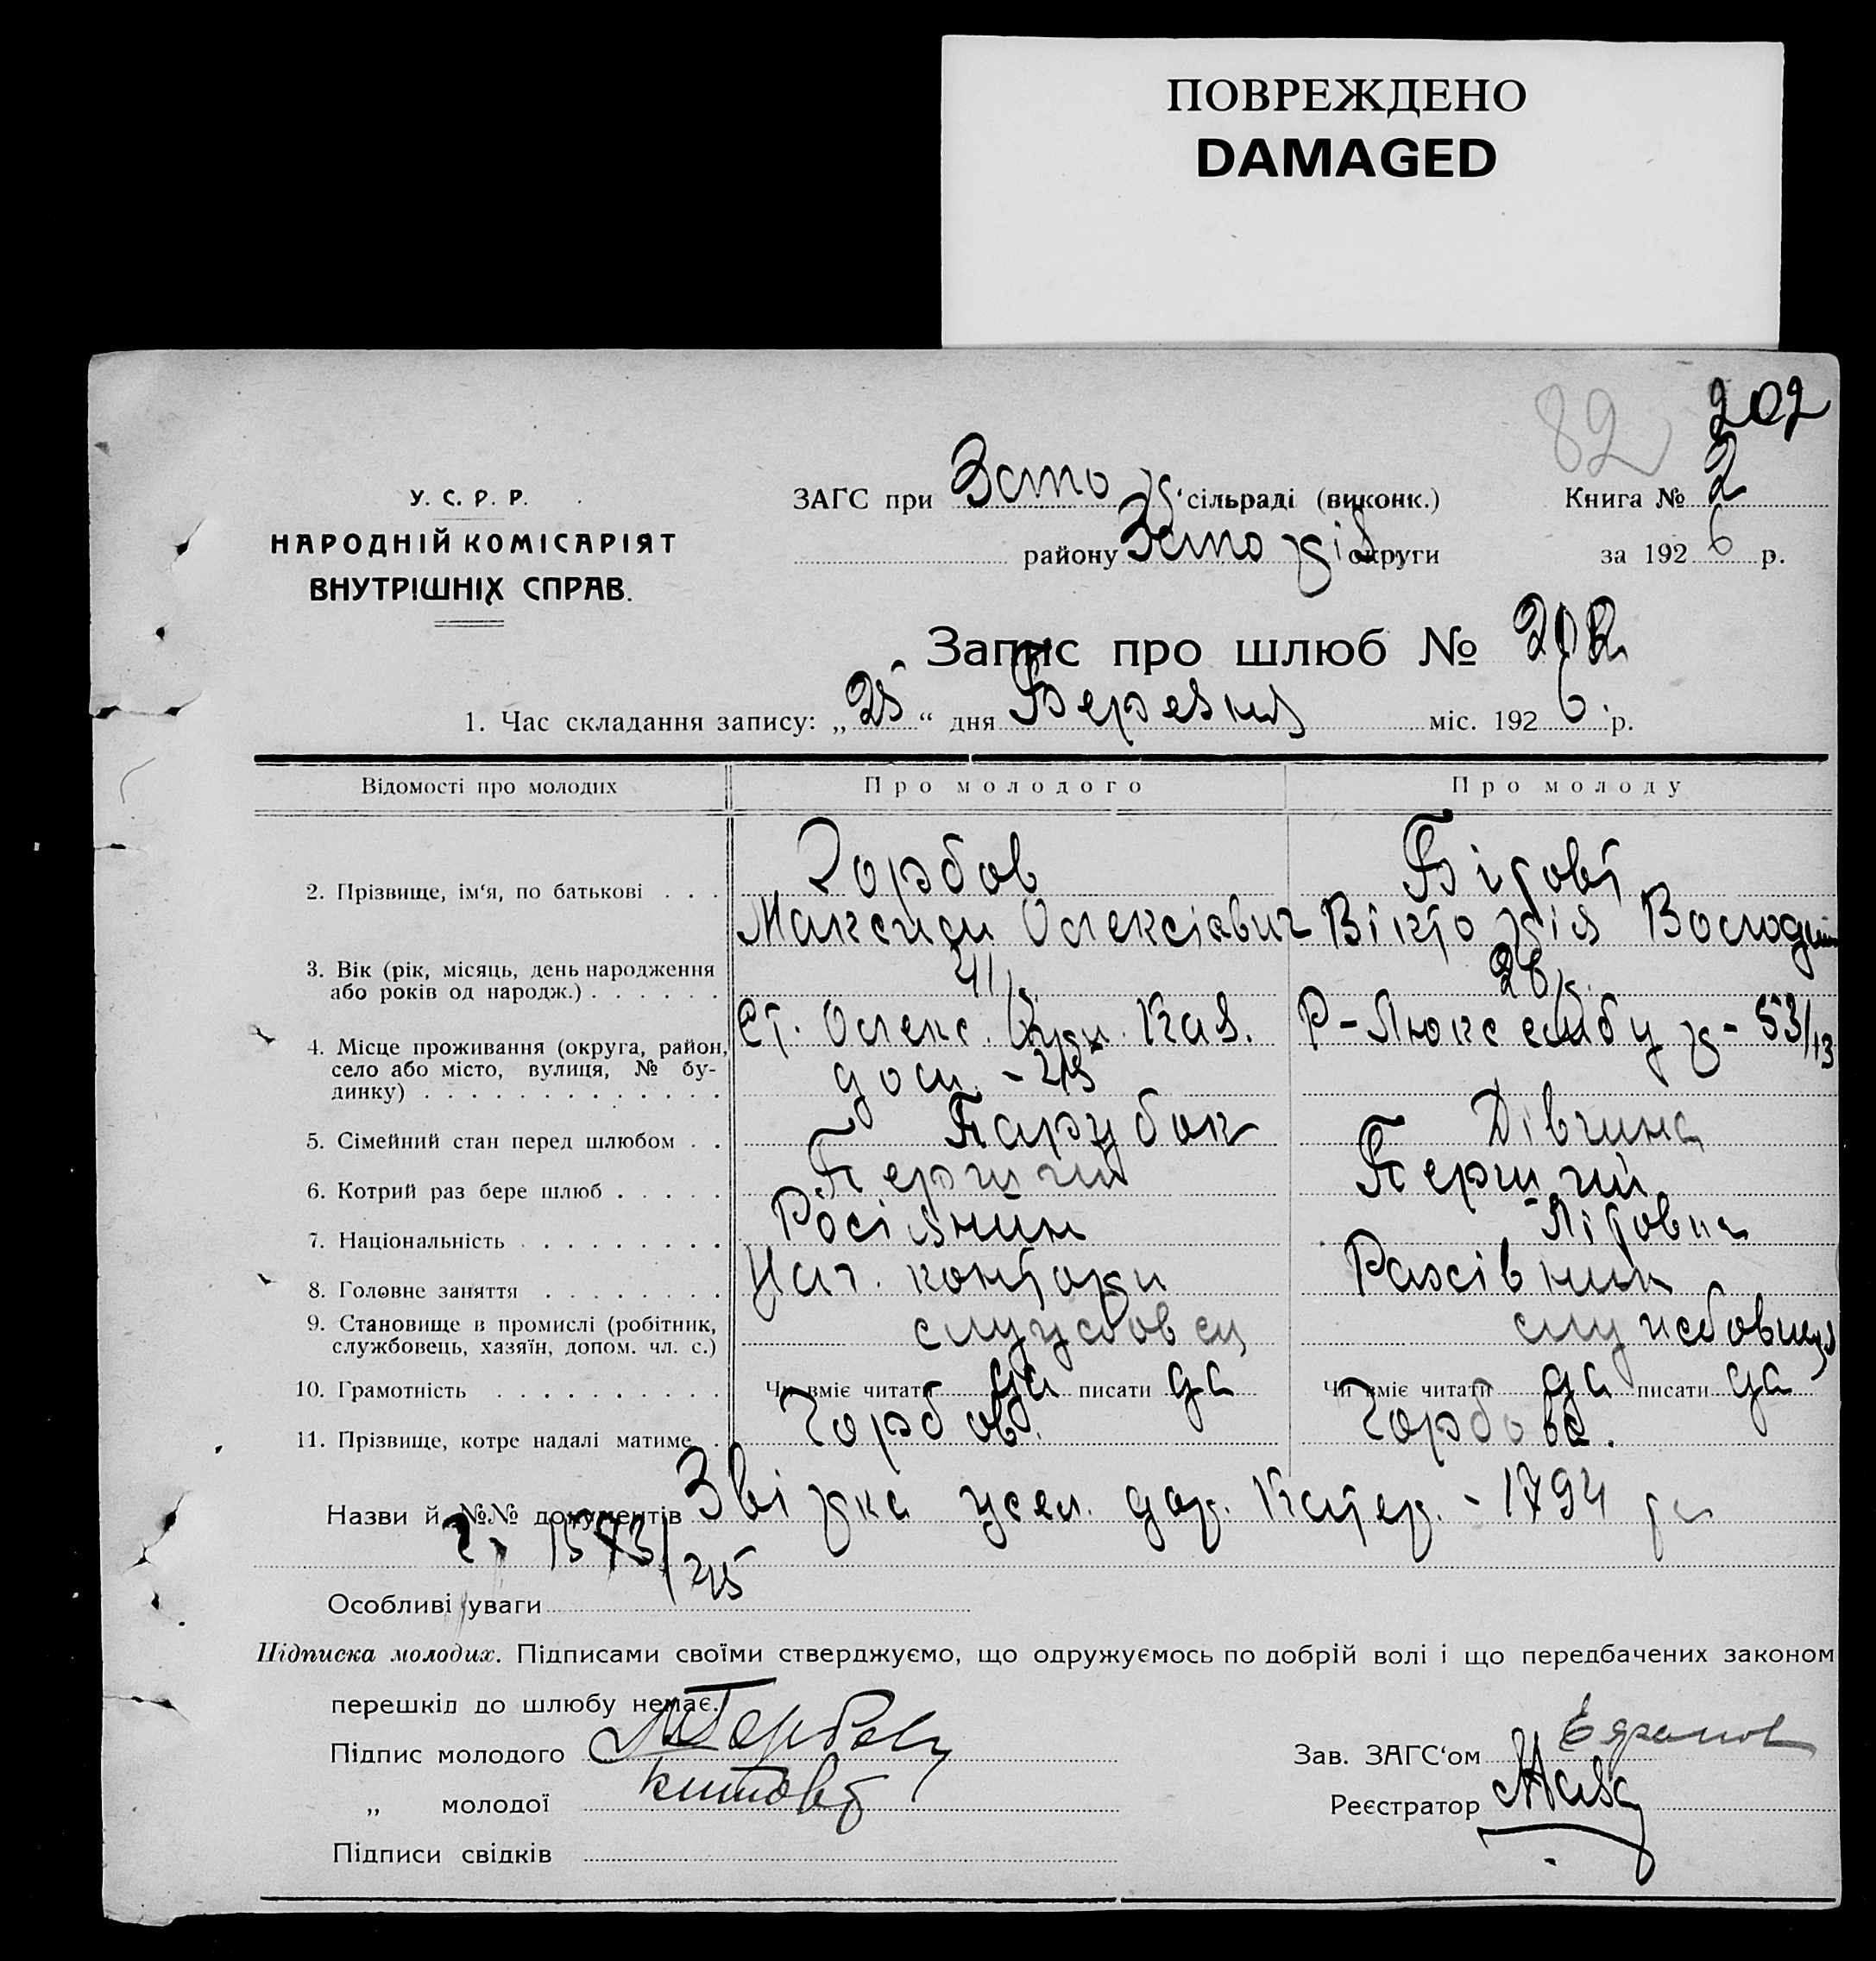 ПОВРЕЖДЕНО
DAMAGED
82 202
У. С. Р. Р.
НАРОДНІЙ КОМІСАРІЯТ
ВНУТРІШНІХ СПРАВ.
ЗАГС при сільраді (виконк.)
Книга № 2
району округи
за 1926 р.
Запис про шлюб № 202
1. Час складання запису: „25“ дня Березня міс. 1926 р.
Відомості про молодих Про молодого Про молоду
2. Прізвище, ім‘я, по батькові . . . Горбов
Максим Олексіевич Вікторія Володим
3. Вік (рік, місяць, день народження
або років од народж.) . . . . . . 41 р. 26 р.
4. Місце проживання (округа, район,
село або місто, вулиця, № бу-
динку) . . . . . . . . . . . . . .
Ст. Олекс. Каз. Р-Люксембург-53/13
5. Сімейний стан перед шлюбом . . Парубок Дівчина
6. Котрий раз бере шлюб . . . . . Перший Перший
7. Національність . . . . . . . . . Росіянин Літовка
8. Головне заняття . . . . . . . . Нач. контори Рахівник
9. Становище в промислі (робітник,
службовець, хазяїн, допом. чл. с.) службовец службовиця
10. Грамотність . . . . . . . . . . Чи вміє читати да писати да Чи вміє читати да писати да
11. Прізвище, котре надалі матиме . Горбов. Горбова.
Назви й №№ документів Звірка дор. Катер. - 1794 та
1573/25
Особливі уваги
Підписка молодих. Підписами своїми стверджуємо, що одружуємось по добрій волі і що передбачених законом
перешкід до шлюбу немає.
Підпис молодого МГорбов
Зав. ЗАГС‘ом
„ молодої
Реєстратор
Підписи свідків